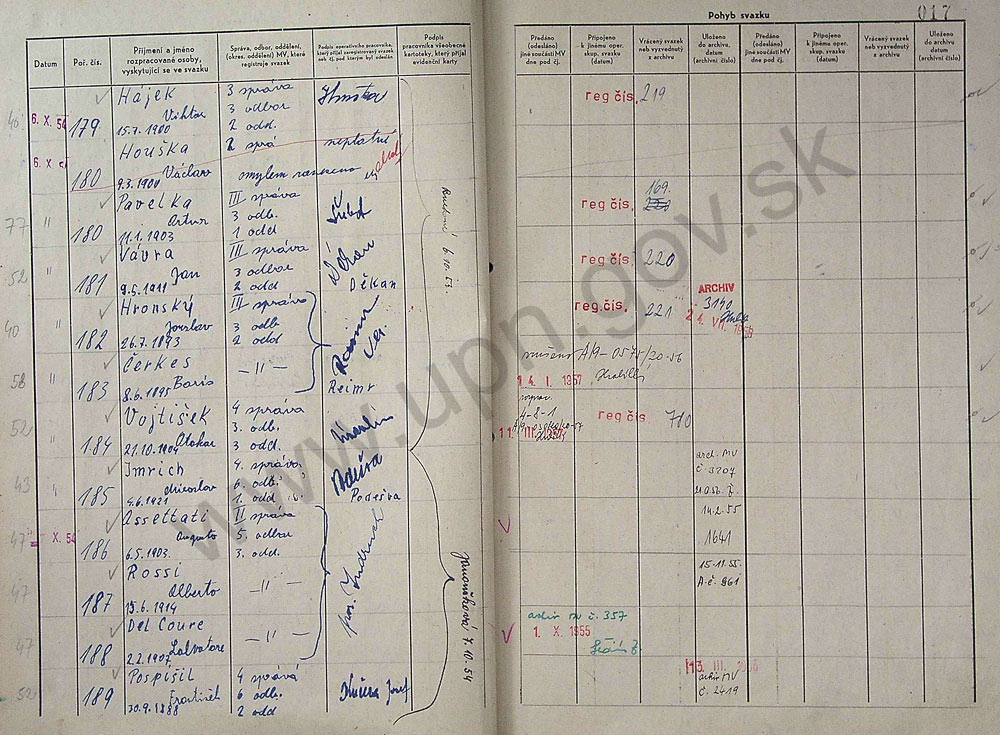 017
Pohyb svazku
Datum
Poř. čís.
Příjmení a jméno
rozpracované osoby,
vyskytující se ve svazku
Správa, odbor, oddělení,
(okres. oddělení) MV, které
registruje svazek
Podpis operativního pracovníka,
který přijal zaregistrovaný svazek
neb čj. pod kterým byl odeslán
Podpis
pracovníka všeobecné
kartoteky, který přijal
evidenční karty
Předáno
(odesláno)
jiné součásti MV
dne pod čj.
Připojeno
k jinému oper.
skup. svazku
(datum)
Vrácený svazek
neb vyzvednutý
z archivu
Uloženo
do archivu,
datum
(archivní číslo)
Předáno
(odesláno)
jiné součásti MV
dne pod čj.
Připojeno
k jinému oper.
skup. svazku
(datum)
Vrácený svazek
neb vyzvednutý
z archivu
Uloženo
do archivu
datum
(archivní číslo)
46
6. X. 54
179
Hájek
Viktor
15.7. 1900
3 správa
3 odbor
2 odd.
reg čís. 219
6. X. 54
180
Houška
Václav
9.3. 1900
2 sprá
omylem
neplatné
77
"
180
Pavelka
Artur
11.1. 1903
III správa
3 odb.
1 odd
reg čís. 169.
52
"
181
Vávra
Jan
9.5. 1911
III správa
3 odbor
2 odd
Děkan
reg čís. 220
40
"
182
Hronský
Jaroslav
26.7. 1893
III správa
3 odb.
2 odd
reg čís. 221
ARCHIV
3140
58
"
183
Čerkes
Boris
8.6. 1895
— " —
Reimr
A/9-0575/20-56
1 4. I. 1957
52
184
Vojtíšek
Otakar
21.10. 1904
4 správa
3. odb.
3 odd.
4-8-1
11. III. 1957
reg čís. 710
43
"
185
Imrich
Miroslav
4.6. 1921
4. správa
6. odb.
1. odd.
Poděšva
arch. MV
č. 3207
47
X. 54
186
Assettati
Augusto
6.5. 1903.
II správa
5. odbor
3. odd.
14.2.55
1641
47
187
Rossi
Alberto
15.6. 1914
— " —
15.11.55.
A-č. 961
47
188
Del Coure
Salvatore
2.2. 1907
— " —
archiv MV č. 357
1. X. 1955
52
189
Pospíšil
František
30.9. 1888
4 správa
6 odb.
2 odd
Kučera Josef
13. III.
archiv MV
č. 2419
6.10.53
Janoušková 7.10.54
www.upn.gov.sk